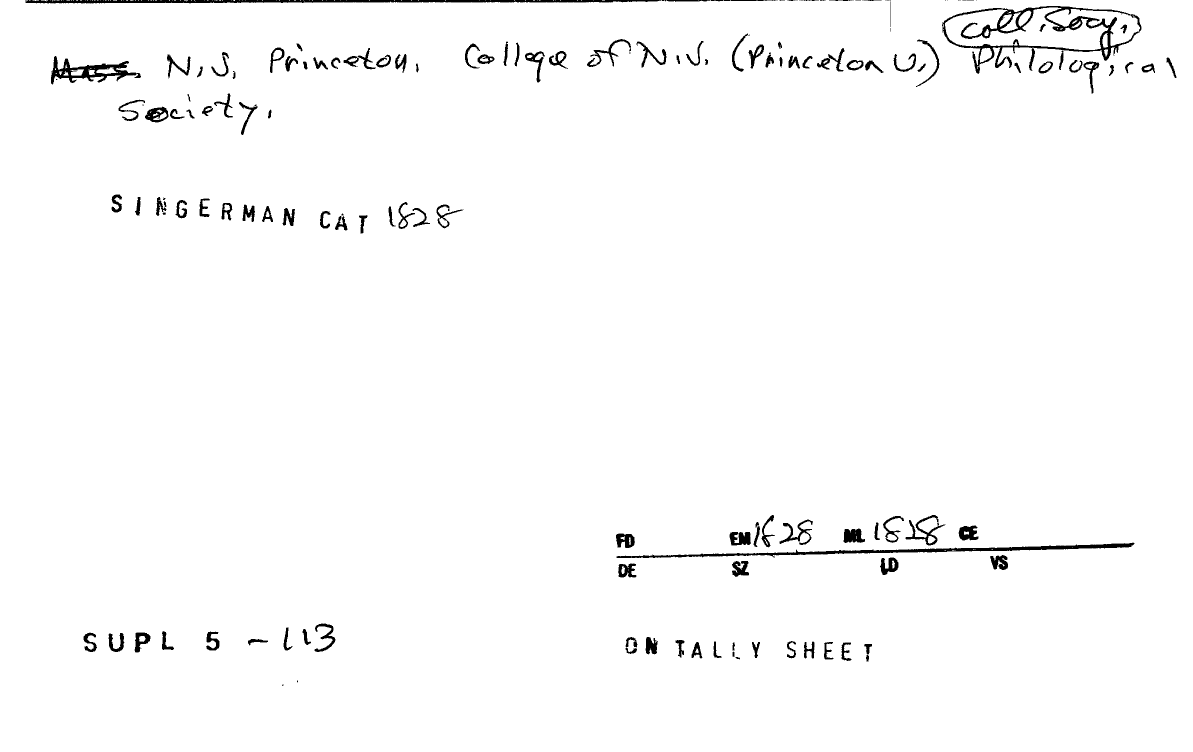 Coll. Socy.
Mass. N.J. Princeton. College of N.J. (Princeton U.) Philological
Society.
SINGERMAN CAT 1828
FD EM 1828 ML 1828 CE
DE SZ LD VS
SUPL 5 - 113
ON TALLY SHEET